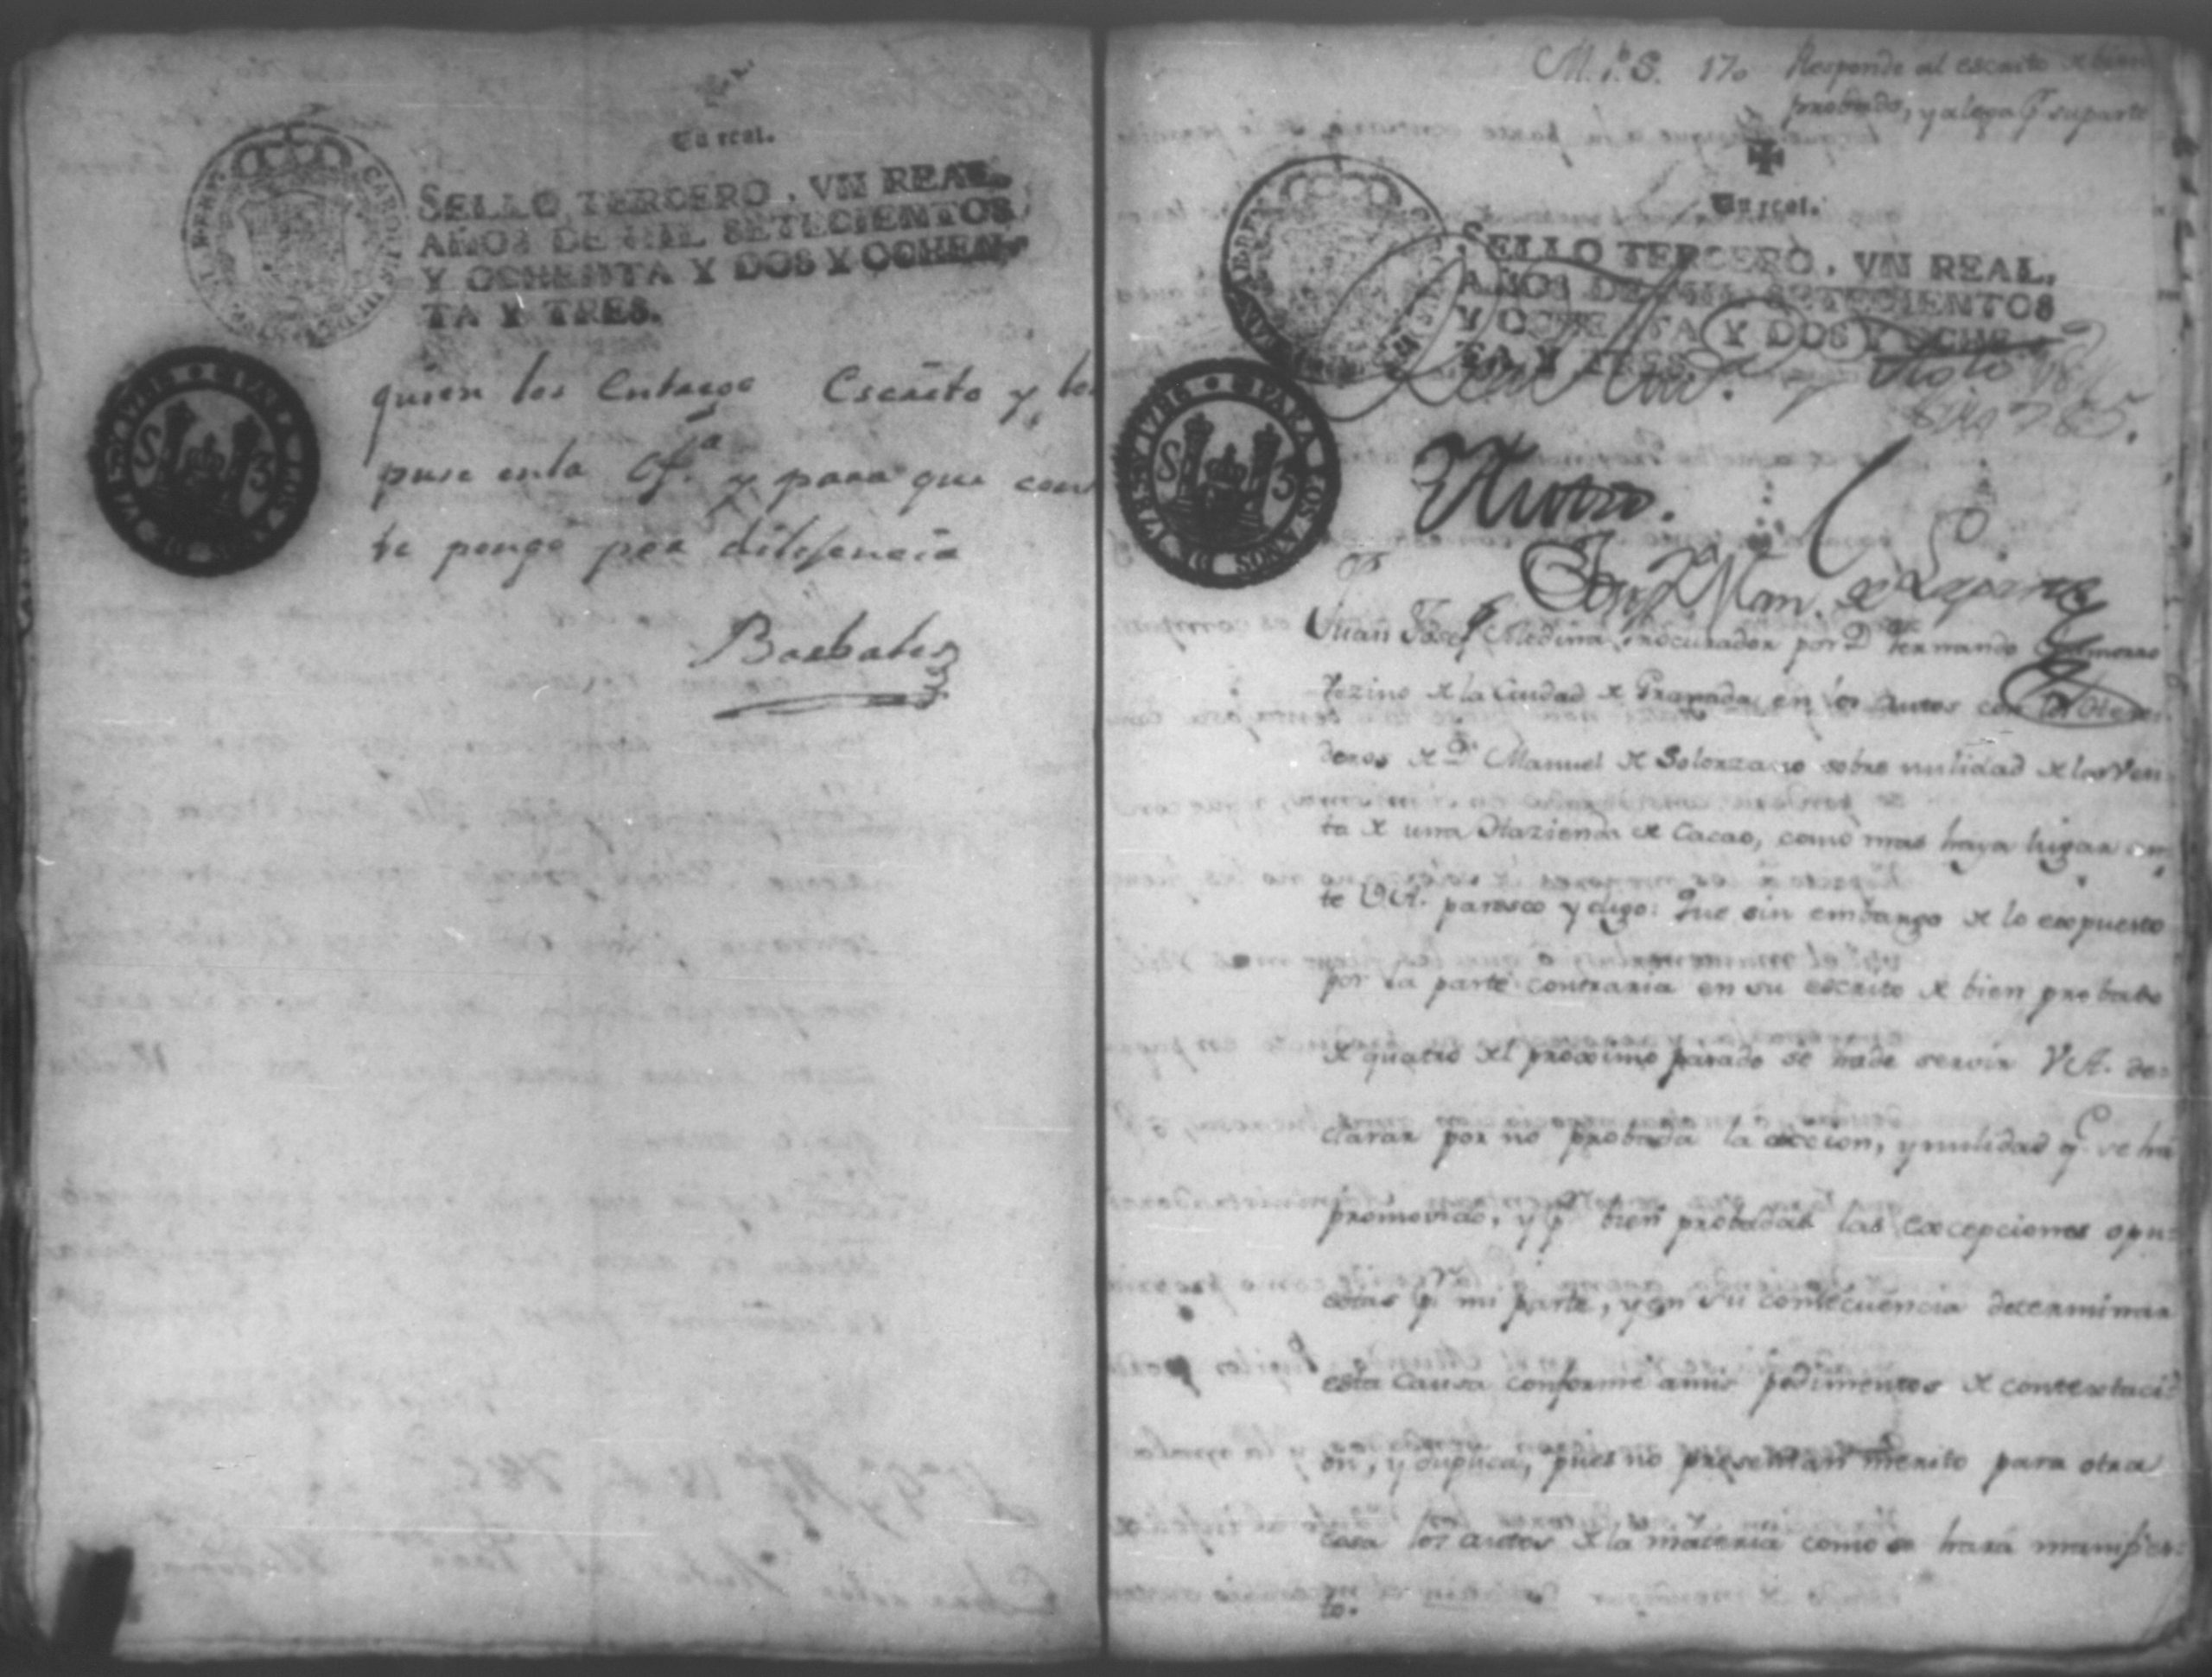 Un real.
SELLO TERCERO, VN REAL,
AÑOS DE MIL SETECIENTOS
Y OCHENTA Y DOS Y OCHEN-
TA Y TRES.
quien los Entregó Escrito y los
puse en la Of.ª y para que cons
te pongo por diligencia
Barbales
M. P. S. 17.
Responde al escrito de bien
probado, y alega pr. su parte
Un real.
SELLO TERCERO, VN REAL,
AÑOS DE MIL SETECIENTOS
Y OCHENTA Y DOS Y OCHEN-
TA Y TRES.
S 3 PARA LOS AÑOS DE 1785 Y 1786
Autos.
Juan Josef Medina Procurador por Dn. Fernando
Vezino de la Ciudad de Granada en los autos con los Here-
deros de Dn. Manuel de Solorzano sobre nulidad de la Ven-
ta de una Hazienda de Cacao, como mas haya lugar an-
te V.A. paresco y digo: Que sin embargo de lo expuesto
por la parte contraria en su escrito de bien probado
de quatro del proximo pasado se hade servir V.A. de-
clarar por no probada la accion, y nulidad q.e se ha
promovido, y pr. bien probadas las excepciones opu-
estas pr. mi parte, y en su consecuencia determinar
esta Causa conforme a mis pedimentos de contestaci-
on, y duplica, pues no presentan merito para otra
cosa los autos de la materia como se hará manifies-
to.